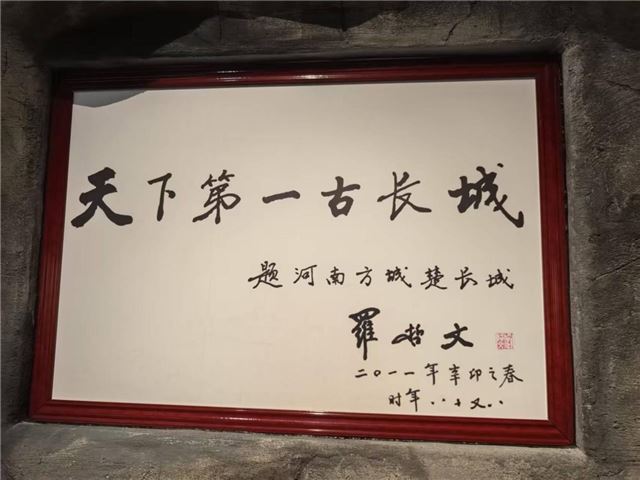 天下第一古长城
题河南方城楚长城
羅哲文
二〇一一年辛卯之春
时年八十又八